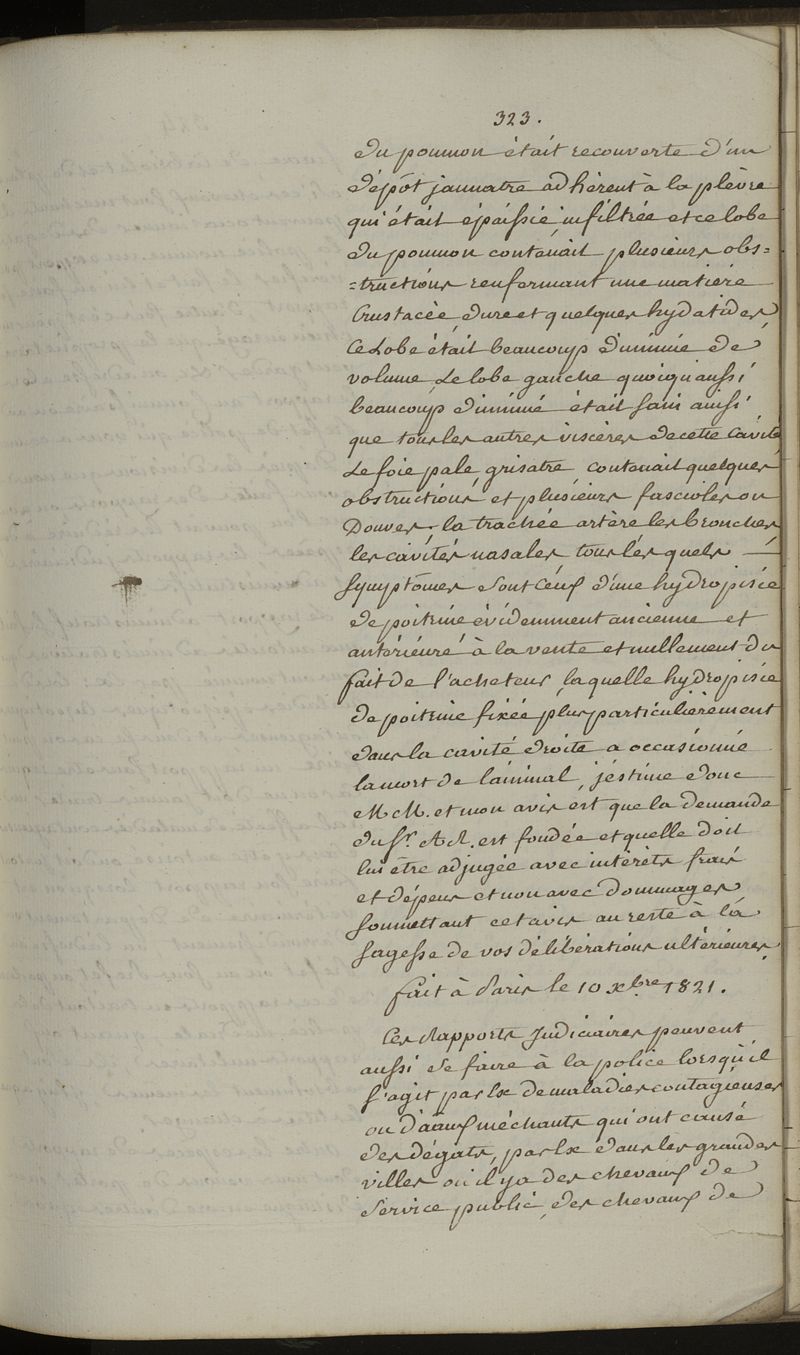 323.
du poumon était recouverte d'un
dépôt jaunatre adhèrent à la plèvre
qui était épaissie, infiltrée et ce lobe
du poumon contenait plusieurs obs=
=tructions renfermant une matière
Crustacée, dure et quelques hydatides,
Ce Lobe était beaucoup diminué de
volume, Le lobe gauche quoiqu'aussi
beaucoup diminué était sain ainsi
que tous les autres viscères de cette Cavité
Le foie pale, grisatre, contenait quelques
obstructions et plusieurs fascioles ou
Douves, la trachée artère les bronches
les cavités nasales, tous lés quels —
Symptômes sont Ceux d'une hydropisée
de poitrine évidemment ancienne et
antérieure à la vente et nullement du
fait de l'acheteur, laquelle hydropisée
de poitrine fixée plus particulièrement
dans la cavité droite a occasionné
la mort de l'animal, j'estime donc
M M. et mon avis est que la demande
du Sr. A R. est fondée et quelle doit
lui être adjugée avec intérèts frais
et dépens et non avec dommages,
soumettant cet avis au reste à la
sagesse de vos délibérations ultérieures,
fait à Paris le 10 Xbre 1821.
Ces Rapports Judiciaires peuvent
aussi se faire à la police lorsqu'il
s'agit par Ex de maladies contagieuses
ou d'aāux méchants qui ont causé
des dégats, par Ex dans les grandes
villes où il y a des chevaux de
Service public, des chevaux de